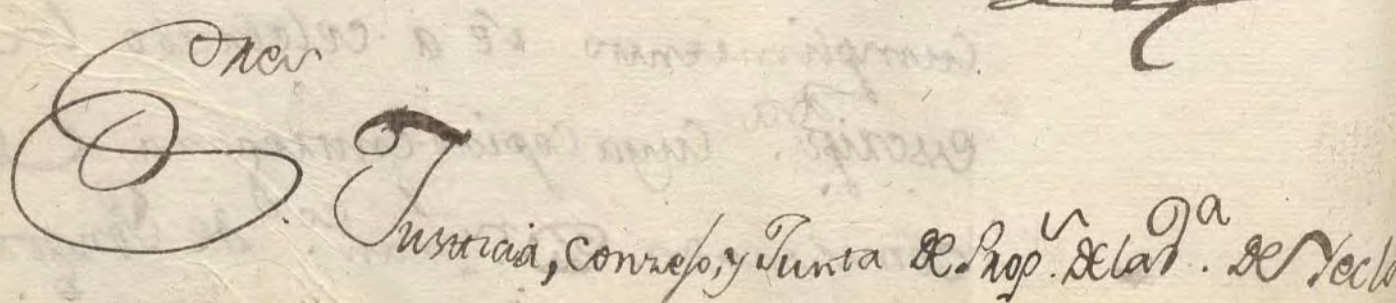 Sres
Justicia, Conzejo, y Junta de Prop.s de la V.a de Yecla